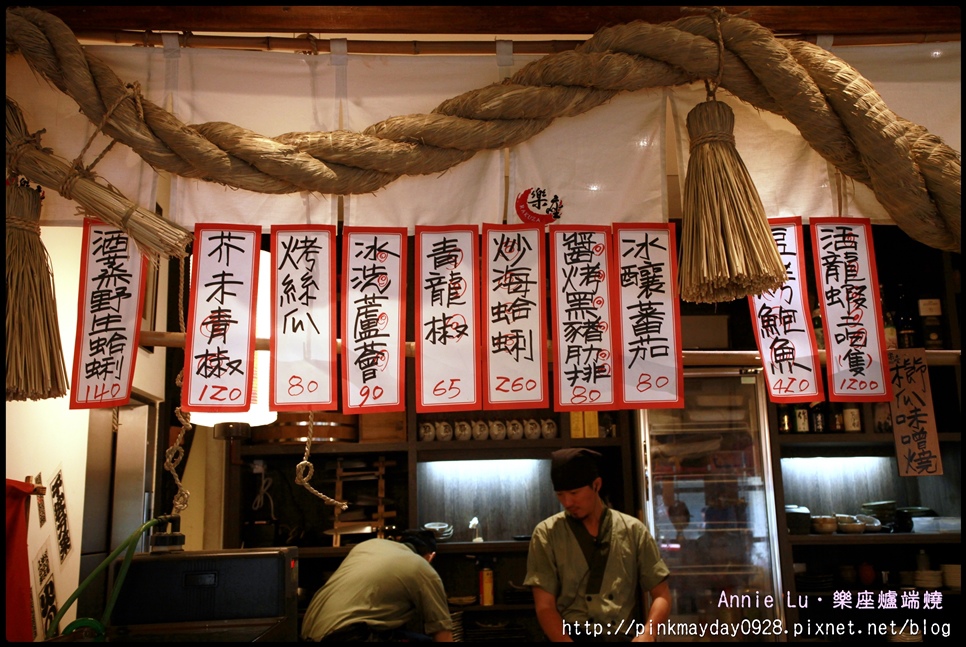 酒蒸野生蛤蜊
140
芥末青椒
120
烤絲瓜
80
冰浣蘆薈
90
青龍椒
65
炒海蛤蜊
260
醬烤黑豬肋排
80
冰釀蕃茄
80
魚
420
活龍蝦(二吋隻)
1200
味噌燒
樂座
Annie Lu·樂座爐端燒
http://pinkmayday0928.pixnet.net/blog